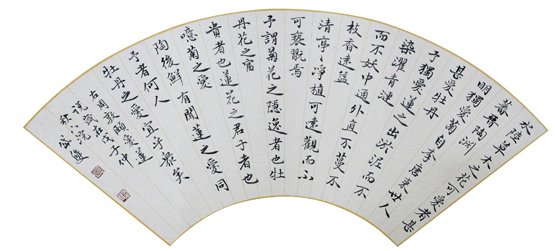 水陸草木之花可愛者甚
蕃晉陶淵
明獨愛菊自李唐来世人
甚愛牡丹
予獨愛蓮之出淤泥而不
染濯清漣
而不妖中通外直不蔓不
枝香遠益
清亭々净植可遠觀而不
可褻翫焉
予謂菊花之隐逸者也牡
丹花之富
貴者也蓮花之君子者也
噫菊之愛
陶後鮮有聞蓮之愛同
予者何人
牡丹之愛宜乎衆矣
右周敦頤愛蓮
说歲在戊子仲